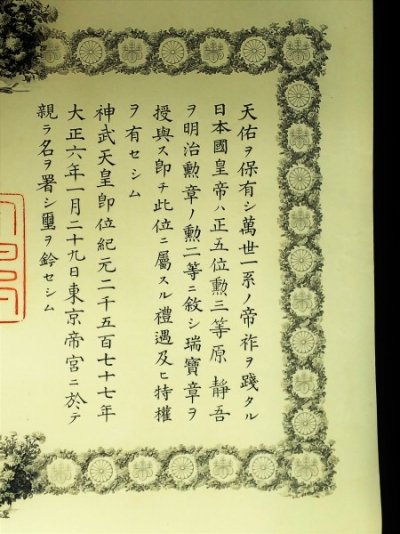 天佑ヲ保有シ萬世一系ノ帝祚ヲ踐タル
日本國皇帝ハ正五位勲三等原靜吾
ヲ明治勲章ノ勲二等ニ敘シ瑞寶章ヲ
授與ス即チ此位ニ屬スル禮遇及ヒ特權
ヲ有セシム
神武天皇即位紀元二千五百七十七年
大正六年一月二十九日東京帝宮ニ於テ
親ラ名ヲ署シ璽ヲ鈐セシム